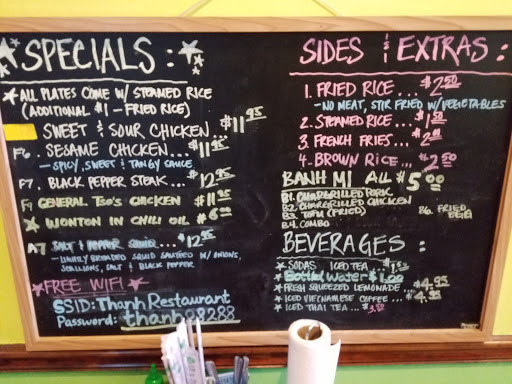 SPECIALS :
ALL PLATES COME W/ STEAMED RICE
(ADDITIONAL $1 - FRIED RICE)
F7. SWEET & SOUR CHICKEN... $11.95
F6. SESAME CHICKEN... $11.95
- SPICY, SWEET & TANGY SAUCE
F7. BLACK PEPPER STEAK... $12.95
F9 GENERAL TSO'S CHICKEN $11.95
WONTON IN CHILI OIL $6.00
A7 SALT & PEPPER SQUID... $12.95
- LIGHTLY BREADED SQUID SAUTEED W/ ONIONS,
SCALLIONS, SALT & BLACK PEPPER
FREE WIFI
SSID: Thanh Restaurant
Password: thanh88288
SIDES & EXTRAS :
1. FRIED RICE... $2.50
- NO MEAT, STIR FRIED W/ VEGETABLES
2. STEAMED RICE... $1.50
3. FRENCH FRIES... $2.00
4. BROWN RICE... $2.50
BANH MI ALL $5.00
B1. CHARGRILLED PORK
B2. CHARGRILLED CHICKEN
B3. TOFU (FRIED)
B4. COMBO
B6. FRIED EGG
BEVERAGES :
SODAS ICED TEA... $1.50
Bottled Water $1.00
FRESH SQUEEZED LEMONADE... $4.95
ICED VIETNAMESE COFFEE... $4.95
ICED THAI TEA... $3.50